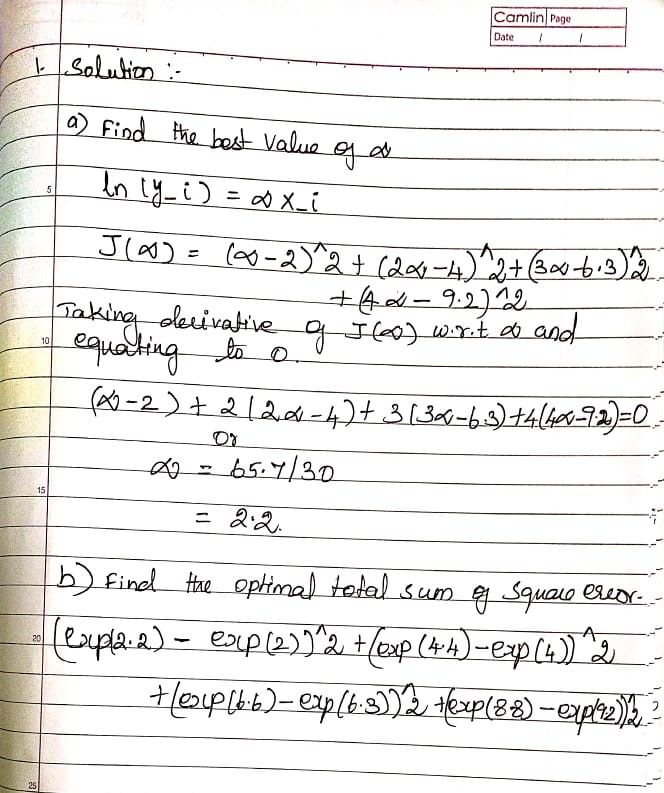 Camlin Page
Date / /
1. Solution :-
a) Find the best value of α
5
ln (y_i) = α x_i
J(α) = (α-2)^2 + (2α-4)^2 + (3α-6.3)^2
+ (4α - 9.2)^2
Taking derivative of J(α) w.r.t α and
10
equating to 0.
(α-2) + 2(2α-4) + 3(3α-6.3) + 4(4α-9.2) = 0
Or
α = 65.7/30
15
= 2.2.
b) Find the optimal total sum of square error.
20
(exp(2.2) - exp(2))^2 + (exp(4.4) - exp(4))^2
+ (exp(6.6) - exp(6.3))^2 + (exp(8.8) - exp(9.2))^2
25